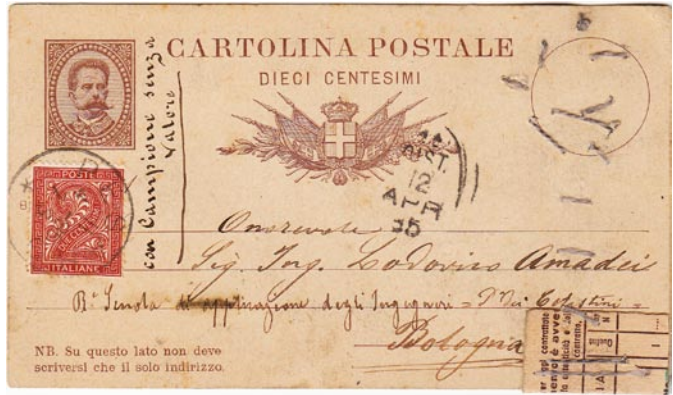 CARTOLINA POSTALE
DIECI CENTESIMI
con Campione senza
Valore
POSTE
DUE CENTESIMI
ITALIANE
DIST.
12
APR
85
Onorevole
Sig. Ing. Lodovico Amadei
Ra. Scuola di applicazione degli Ingegneri =
Bologna
NB. Su questo lato non deve
scriversi che il solo indirizzo.